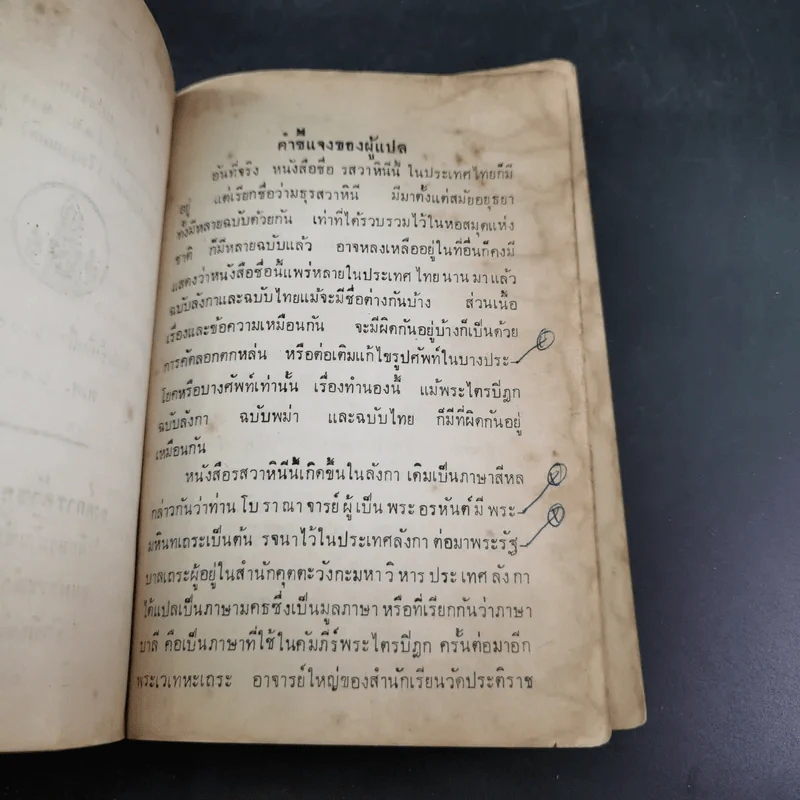 คำชี้แจงของผู้แปล
อันที่จริง หนังสือชื่อ รสวาหินีนี้ ในประเทศไทยก็มี
อยู่ แต่เรียกชื่อว่ามธุรสวาหินี มีมาตั้งแต่สมัยอยุธยา
ทั้งมีหลายฉบับด้วยกัน เท่าที่ได้รวบรวมไว้ในหอสมุดแห่ง
ชาติ ก็มีหลายฉบับแล้ว อาจหลงเหลืออยู่ในที่อื่นก็คงมี
แสดงว่าหนังสือชื่อนี้แพร่หลายในประเทศไทยนานมาแล้ว
ฉบับลังกาและฉบับไทยแม้จะมีชื่อต่างกันบ้าง ส่วนเนื้อ
เรื่องและข้อความเหมือนกัน จะมีผิดกันอยู่บ้างก็เป็นด้วย
การคัดลอกตกหล่น หรือต่อเติมแก้ไขรูปศัพท์ในบางประ-
โยคหรือบางศัพท์เท่านั้น เรื่องทำนองนี้ แม้พระไตรปิฎก
ฉบับลังกา ฉบับพม่า และฉบับไทย ก็มีที่ผิดกันอยู่
เหมือนกัน
หนังสือรสวาหินีนี้เกิดขึ้นในลังกา เดิมเป็นภาษาสีหล
กล่าวกันว่าท่านโบราณาจารย์ผู้เป็นพระอรหันต์มีพระ-
มหินทเถระเป็นต้น รจนาไว้ในประเทศลังกา ต่อมาพระรัฐ
บาลเถระผู้อยู่ในสำนักคุตตะวังกะมหาวิหารประเทศลังกา
ได้แปลเป็นภาษามคธซึ่งเป็นมูลภาษา หรือที่เรียกกันว่าภาษา
บาลี คือเป็นภาษาที่ใช้ในคัมภีร์พระไตรปิฎก ครั้นต่อมาอีก
พระเวเทหะเถระ อาจารย์ใหญ่ของสำนักเรียนวัดประติราช